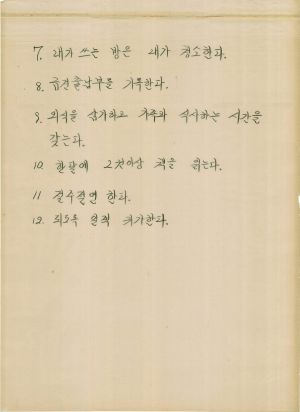 7. 내가 쓰는 방은 내가 청소한다.
8. 금전출납부를 기록한다.
9. 외식을 삼가하고 가족과 식사하는 시간을
갖는다.
10. 한달에 2권이상 책을 읽는다.
11 절수절연 한다.
12. 되도록 일찍 귀가한다.